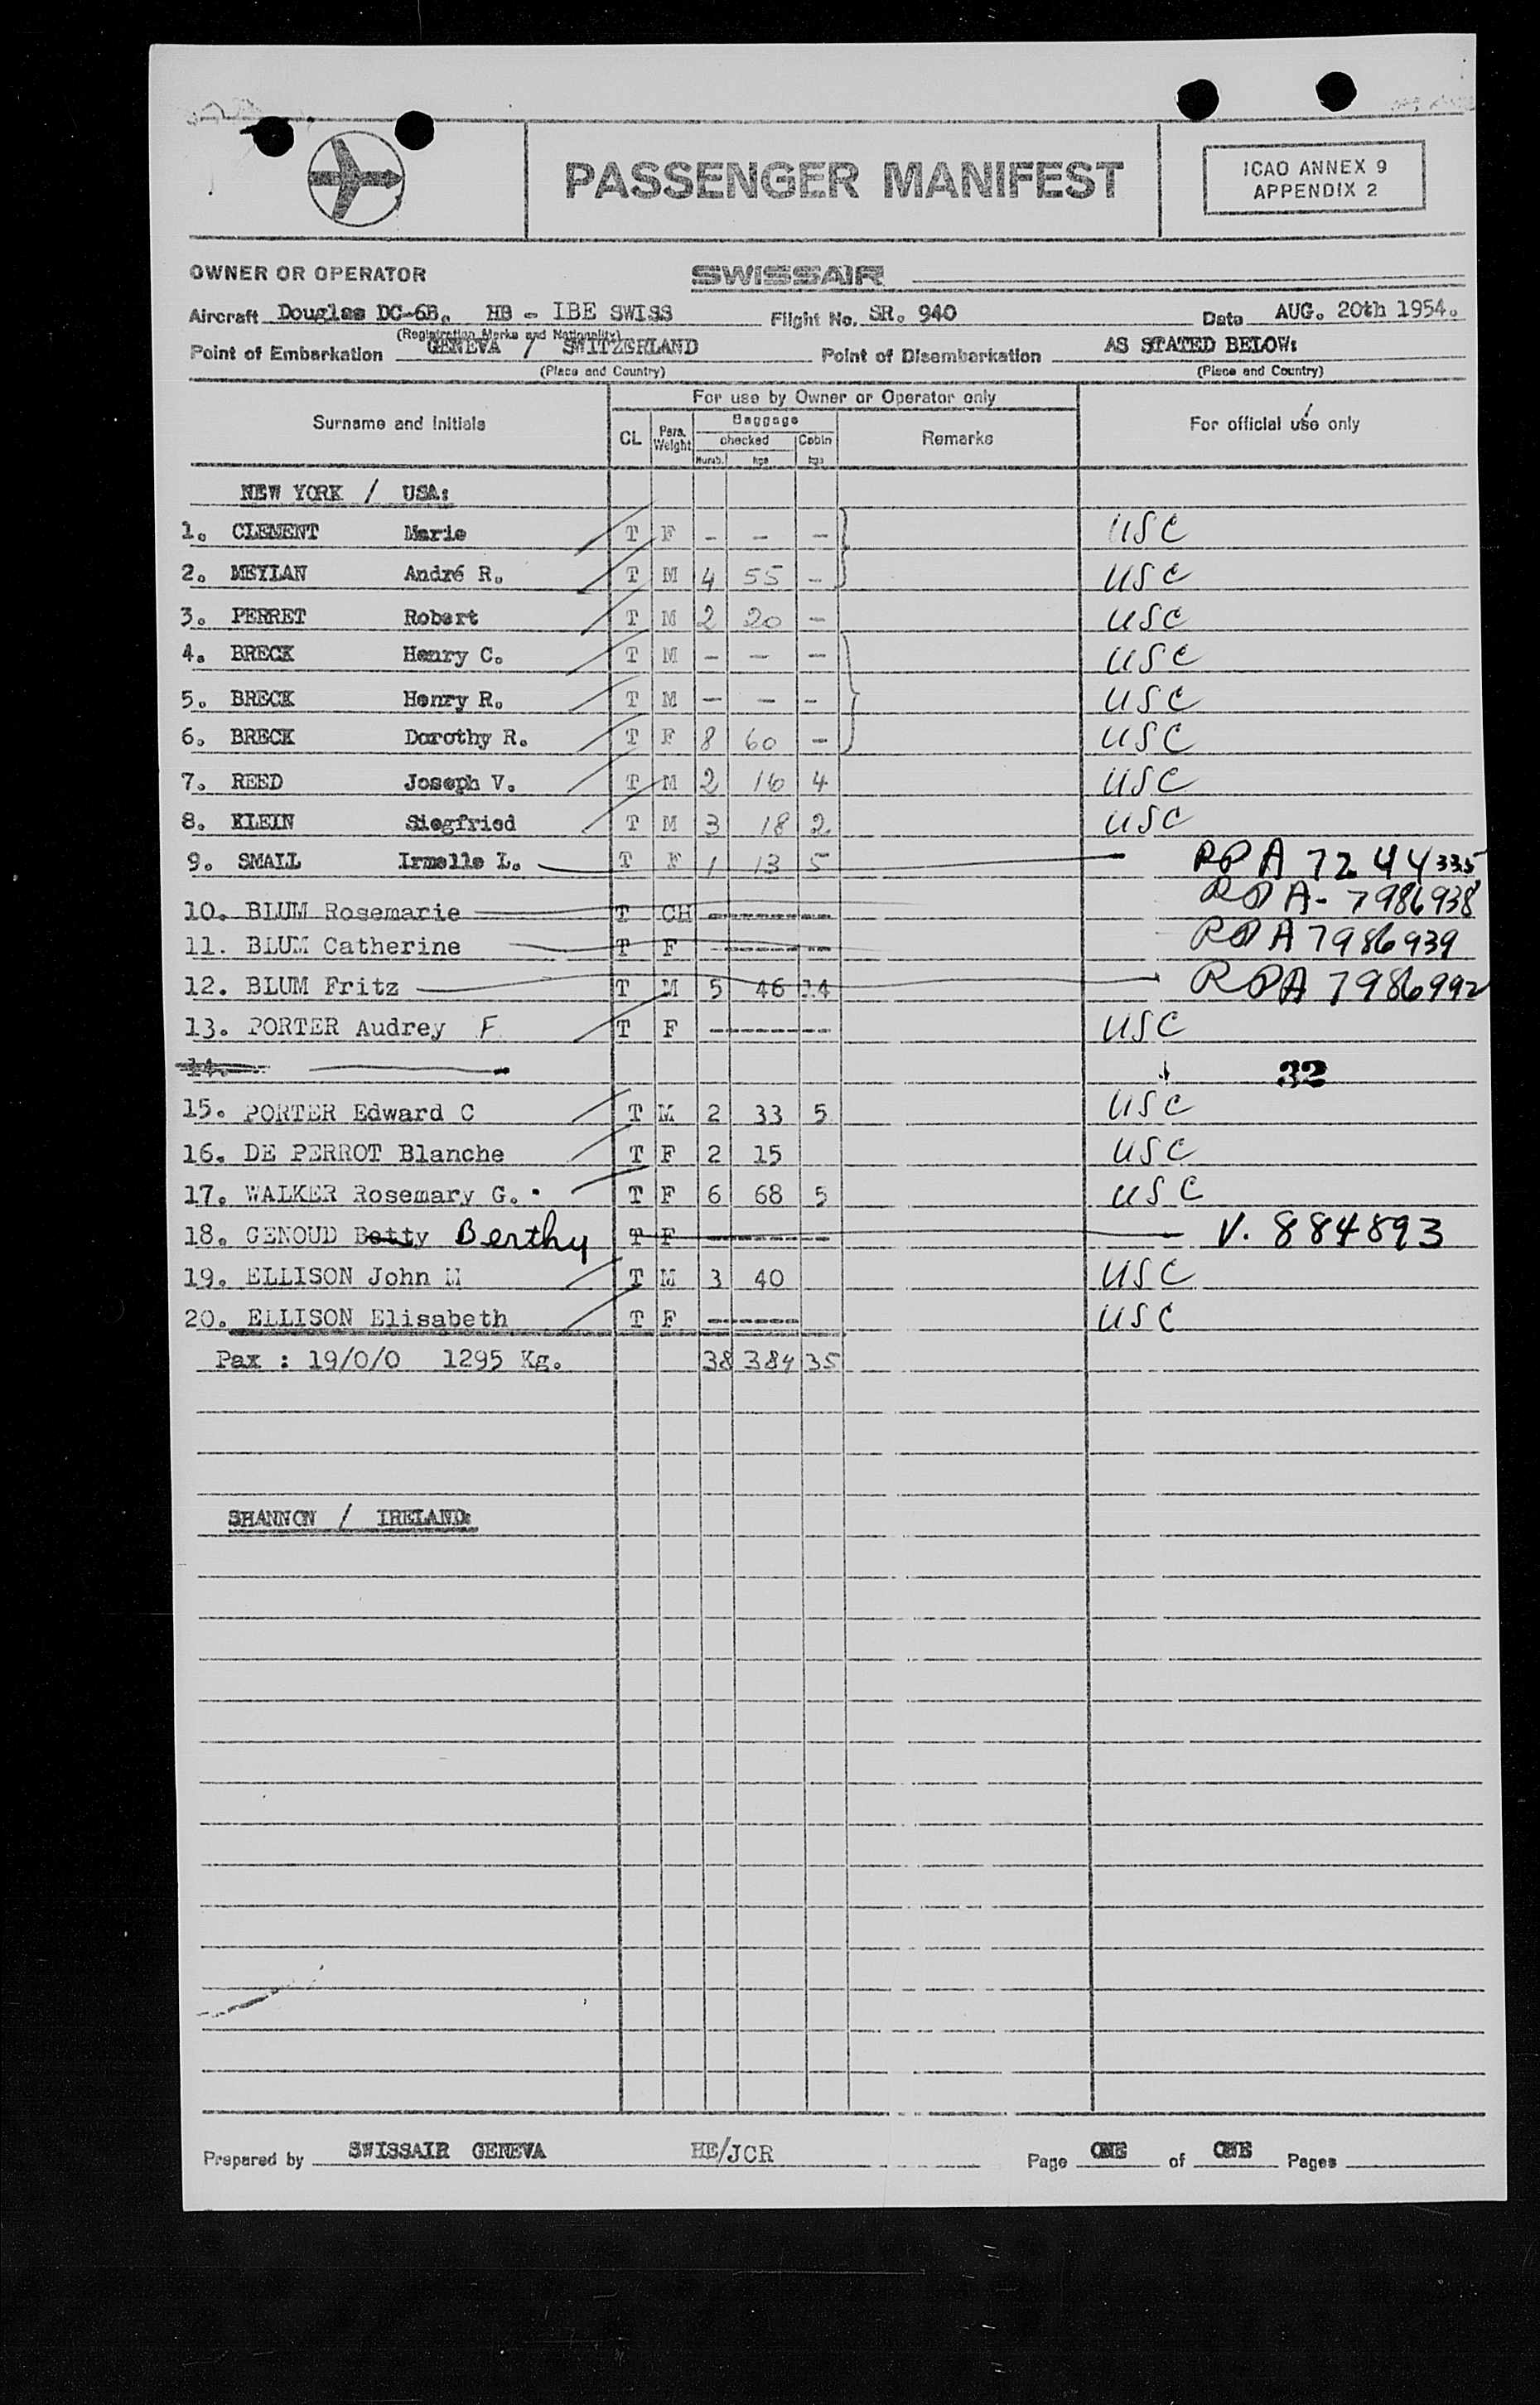 PASSENGER MANIFEST
ICAO ANNEX 9
APPENDIX 2
OWNER OR OPERATOR SWISSAIR
Aircraft Douglas DC-6B. HB - IBE SWISS Flight No. SR. 940 Date AUG. 20th 1954.
(Registration Marks and Nationality)
Point of Embarkation GENEVA / SWITZERLAND Point of Disembarkation AS STATED BELOW:
(Place and Country) (Place and Country)
For use by Owner or Operator only
Surname and Initials CL Pers. Weight Baggage checked Numb. kgs Cabin kgs Remarks For official use only
NEW YORK / USA:
1. CLEMENT Marie T F - - - USC
2. MEYLAN André R. T M 4 55 - USC
3. PERRET Robert T M 2 20 - USC
4. BRECK Henry C. T M - - - USC
5. BRECK Henry R. T M - - - USC
6. BRECK Dorothy R. T F 8 60 - USC
7. REED Joseph V. T M 2 16 4 USC
8. KLEIN Siegfried T M 3 18 2 USC
9. SMALL Irmelle L. T F 1 13 5 RPA 7244335
10. BLUM Rosemarie T CH --------- RPA- 7986938
11. BLUM Catherine T F --------- RPA 7986939
12. BLUM Fritz T M 5 46 14 RPA 7986992
13. PORTER Audrey F. T F --------- USC
14.
32
15. PORTER Edward C T M 2 33 5 USC
16. DE PERROT Blanche T F 2 15 USC
17. WALKER Rosemary G. T F 6 68 5 USC
18. GENOUD Betty Berthy T F --------- V. 884893
19. ELLISON John M T M 3 40 USC
20. ELLISON Elisabeth T F ------- USC
Pax : 19/0/0 1295 Kg. 38 384 35
SHANNON / IRELAND:
Prepared by SWISSAIR GENEVA HE/JCR Page ONE of ONE Pages